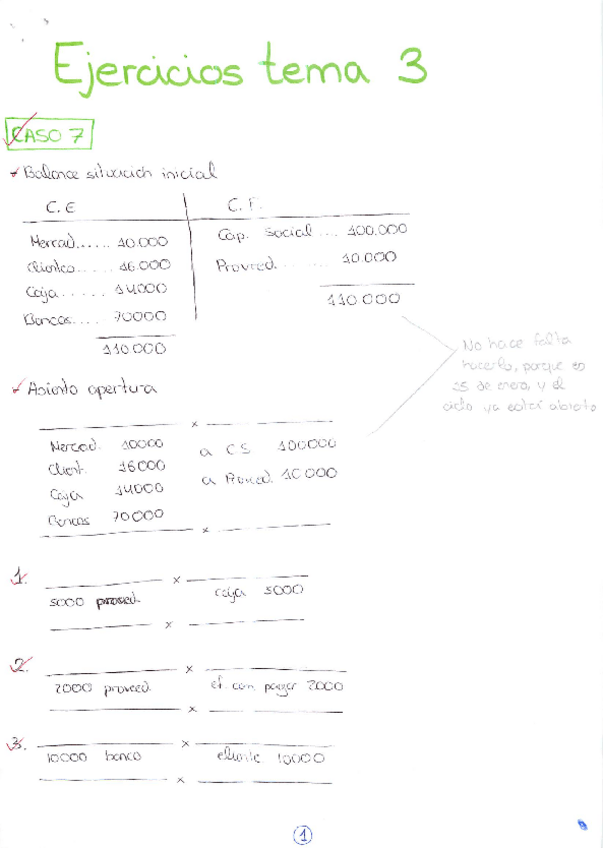 Ejercicios tema 3
CASO 7
Balance situación inicial
C.E C.F.
Mercad...... 10.000 Cap. Social .... 100.000
Clientes...... 16.000 Proveed. ........ 10.000
Caja...... 14000 110.000
Bancos.... 70000
110.000
No hace falta
hacerlo, porque es
25 de enero, y el
ciclo ya estará abierto
Asiento apertura
x
Mercad. 10000 a CS 100000
Client. 16000 a Proved. 10.000
Caja 14000
Bancos 70000
x
1. x
5000 proveed. caja 5000
x
2. x
2000 proveed. ef. com pagar 2000
x
3. x
10000 banco cliente 10000
x
1